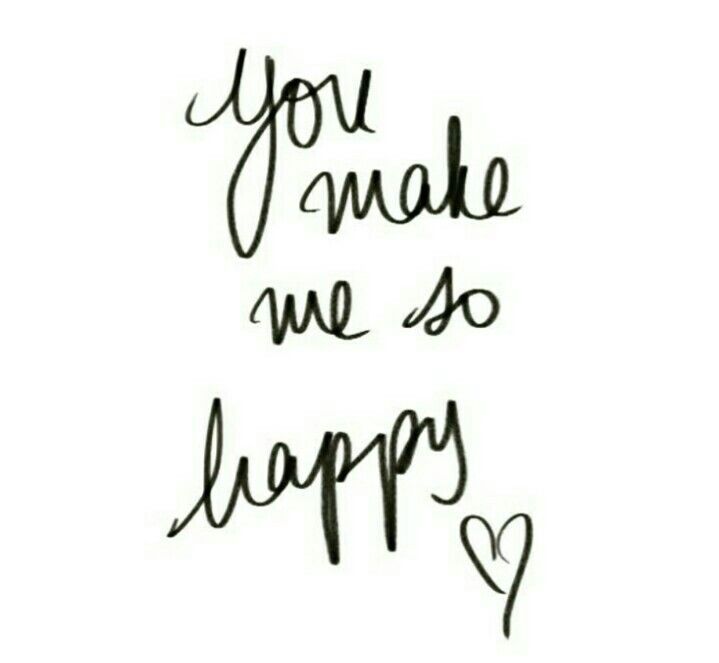 you
make
me so
happy